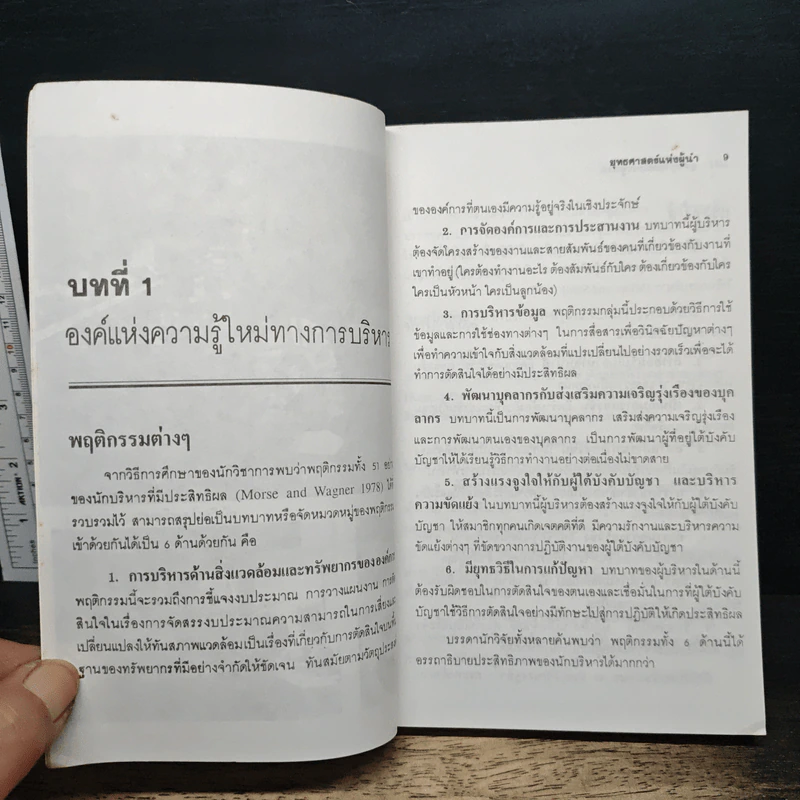 บทที่ 1
องค์แห่งความรู้ใหม่ทางการบริหาร
พฤติกรรมต่างๆ
จากวิธีการศึกษาของนักวิชาการพบว่าพฤติกรรมทั้ง 51
ของนักบริหารที่มีประสิทธิผล (Morse and Wagner 1978) ได้
รวบรวมไว้ สามารถสรุปย่อเป็นบทบาทหรือจัดหมวดหมู่ของพฤติกรรม
เข้าด้วยกันได้เป็น 6 ด้านด้วยกัน คือ
1. การบริหารด้านสิ่งแวดล้อมและทรัพยากรขององค์การ
พฤติกรรมนี้จะรวมถึงการชี้แจงงบประมาณ การวางแผนงาน
สินใจในเรื่องการจัดสรรงบประมาณความสามารถในการเสี่ยงและ
เปลี่ยนแปลงให้ทันสภาพแวดล้อมเป็นเรื่องที่เกี่ยวกับการตัดสินใจบนพื้น
ฐานของทรัพยากรที่มีอย่างจำกัดให้ชัดเจน ทันสมัยตามวัตถุประสงค์
ยุทธศาสตร์แห่งผู้นำ 9
ขององค์การที่ตนเองมีความรู้อยู่จริงในเชิงประจักษ์
2. การจัดองค์การและการประสานงาน บทบาทนี้ผู้บริหาร
ต้องจัดโครงสร้างของงานและสายสัมพันธ์ของคนที่เกี่ยวข้องกับงานที่
เขาทำอยู่ (ใครต้องทำงานอะไร ต้องสัมพันธ์กับใคร ต้องเกี่ยวข้องกับใคร
ใครเป็นหัวหน้า ใครเป็นลูกน้อง)
3. การบริหารข้อมูล พฤติกรรมกลุ่มนี้ประกอบด้วยวิธีการใช้
ข้อมูลและการใช้ช่องทางต่างๆ ในการสื่อสารเพื่อวินิจฉัยปัญหาต่างๆ
เพื่อทำความเข้าใจกับสิ่งแวดล้อมที่แปรเปลี่ยนไปอย่างรวดเร็วเพื่อจะได้
ทำการตัดสินใจได้อย่างมีประสิทธิผล
4. พัฒนาบุคลากรกับส่งเสริมความเจริญรุ่งเรื่องของบุค
ลากร บทบาทนี้เป็นการพัฒนาบุคลากร เสริมส่งความเจริญรุ่งเรื่อง
และการพัฒนาตนเองของบุคลากร เป็นการพัฒนาผู้ที่อยู่ใต้บังคับ
บัญชาให้ได้เรียนรู้วิธีการทำงานอย่างต่อเนื่องไม่ขาดสาย
5. สร้างแรงจูงใจให้กับผู้ใต้บังคับบัญชา และบริหาร
ความขัดแย้ง ในบทบาทนี้ผู้บริหารต้องสร้างแรงจูงใจให้กับผู้ใต้บังคับ
บัญชา ให้สมาชิกทุกคนเกิดเจตคติที่ดี มีความรักงานและบริหารความ
ขัดแย้งต่างๆ ที่ขัดขวางการปฏิบัติงานของผู้ใต้บังคับบัญชา
6. มียุทธวิธีในการแก้ปัญหา บทบาทของผู้บริหารในด้านนี้
ต้องรับผิดชอบในการตัดสินใจของตนเองและเชื่อมั่นในการที่ผู้ใต้บังคับ
บัญชาใช้วิธีการตัดสินใจอย่างมีทักษะไปสู่การปฏิบัติให้เกิดประสิทธิผล
บรรดานักวิจัยทั้งหลายค้นพบว่า พฤติกรรมทั้ง 6 ด้านนี้ได้
อรรถาธิบายประสิทธิภาพของนักบริหารได้มากกว่า